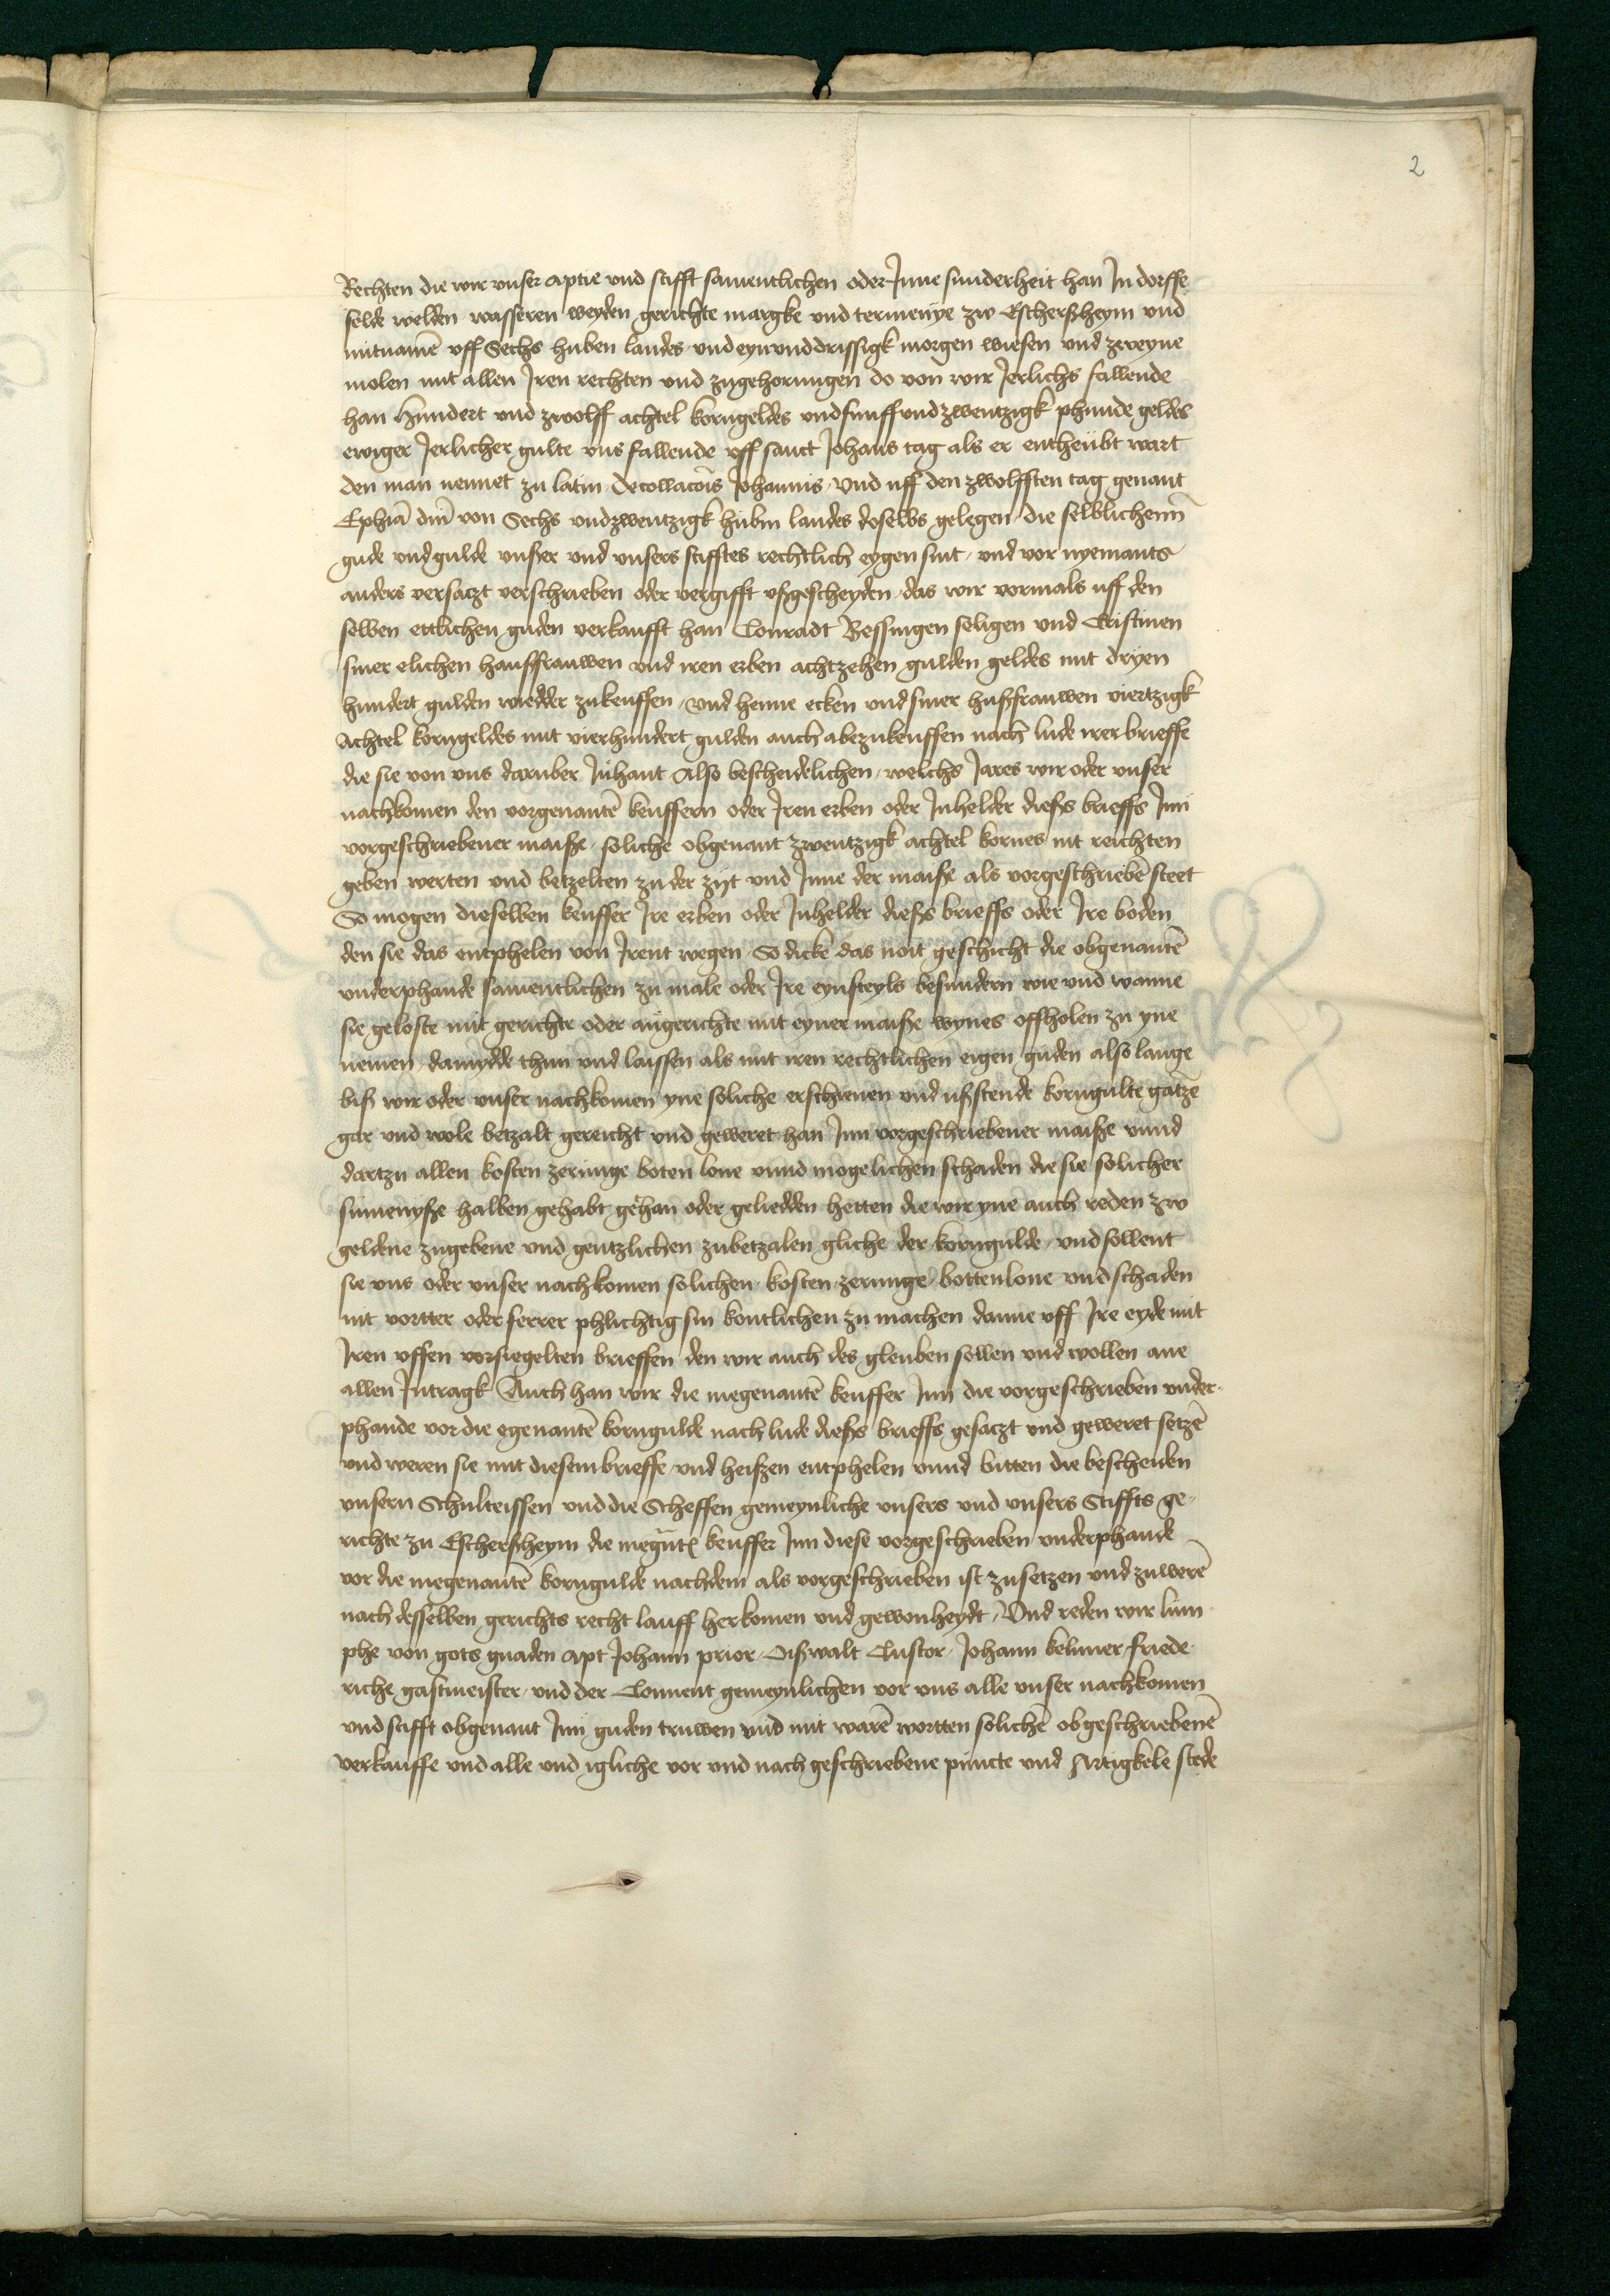 2
Rechten die wir vnser aptie vnd stifft samentlichen oder Jnne sunderheit han Jn dorffe
felde welden wasseren weyden gerichte margke vnd termenye zw Eschersheym vnd
mitnamē vff Sechs huben landes vnd eynvnddrissigk morgen wiesen vnd zweyne
molen mit allen Jren rechten vnd zugehorungen do von wir Jerlichs fallende
han hundert vnd zwolff achtel korngeldes vnd funff vnd zwentzigk phunde geldes
ewiger Jerlicher gulte vns fallende vff sanct Johans tag als er entheubt wart
den man nennet zu latin decollacōis Johannis vnd uff den zwolfften tag genant
Ephiā dn̄i von Sechs vnd zwentzigk hubin landes doselbs gelegen die selblichenn
gude vnd gulde vnßer vnd vnsers stifftes rechtlich eygen sint vnd vor nyemants
anders versatzt verschrieben oder vergifft vßgescheyden das wir vormals uff den
selben ettlichen guden verkaufft han Conradt Bessingen seligen vnd Cristinen
siner elichen haußfrauwen vnd iren erben achtzehen gulden geldes mit dryen
hundert gulden wiedder zukeuffen vnd henne ecken vnd siner hußfrauwen viertzigk
Achtel korngeldes mit vierhundert gulden auch abezukeuffen nach lude irer brieffe
die sie von vns daruber Jnhant Also bescheidelichen welchs Jares wir oder vnser
nachkomen den vorgenantē keuffern oder Jren erben oder Jnhelder dieß brieffs Jnn
vorgeschriebener maiße soliche obgenant zwentzigk achtel kornes nit reichten
geben werten vnd betzelten zu der zijt vnd Jnne der maiße als vorgeschriebē steet
So mogen dieselben keuffer Jre erben oder Jnhelder dießs brieffs oder Jre boden
den sie das entphelen von Jrent wegen So dicke das noit geschicht die obgenantē
vnderphande samentlichen zu male oder Jre eynsteyls besundern wie vnd wanne
sie geloste mit gerichte oder angerichte mit eyner maiße wynes offholen zu yne
nemen damydde thun vnd laissen als mit iren rechtlichen eigen guden also lange
biß wir oder vnser nachkomen yne soliche erschienen vnd ußstende korngulte gatze
gar vnd wole betzalt gereicht vnd geweret han Jnn vorgeschriebener maiße vnnd
dartzu allen kosten zerunge boten lone vnnd mogelichen schaden die sie solicher
sumenyße halben gehabt gehan oder geliedden hetten die wir yne auch reden zw
geldene zugebene vnd gentzlichen zubetzalen gliche der korngulde vnd sollent
sie vns oder vnser nachkomen solichen kosten zerunge bottenlone vnd schaden
nit vortter oder ferrer phlichtig sin kontlichen zu machen danne vff Jre eyde mit
Jren vffen vorsiegelten brieffen den wir auch des gleuben sollen vnd wollen ane
allen Jntragk Auch han wir die megenantē keuffer Jnn die vorgeschrieben vnder
phande vor die egenantē korngulde nach lude dießs brieffs gesatzt vnd geweret setzē
vnd weren sie mit diesem brieffe vnd heißen entphelen vnnd bitten die bescheiden
vnsern Schulteissen vnd die Scheffen gemeynliche vnsers vnd vnsers Stiffts ge
richte zu Eschersheym die megn̄tē keuffer Jnn diese vorgeschrieben vnderphande
vor die megenantē korngulde nachdem als vorgeschrieben ist zusetzen vnd zuwerē
nach desselben gerichts recht lauff herkomen vnd gewonheydt Vnd reden wir lum
phe von gots gnaden apt Johann prior Oißwalt Custor Johann kelnner friede
riche gastmeister vnd der Conuent gemeynlichen vor vns alle vnser nachkomen
vnd stifft obgenant Jnn guden truwen vnd mit warē wortten solichē obgeschriebenē
verkauffe vnd alle vnd igliche vor vnd nach geschriebene puncte vnd Artigkele stede